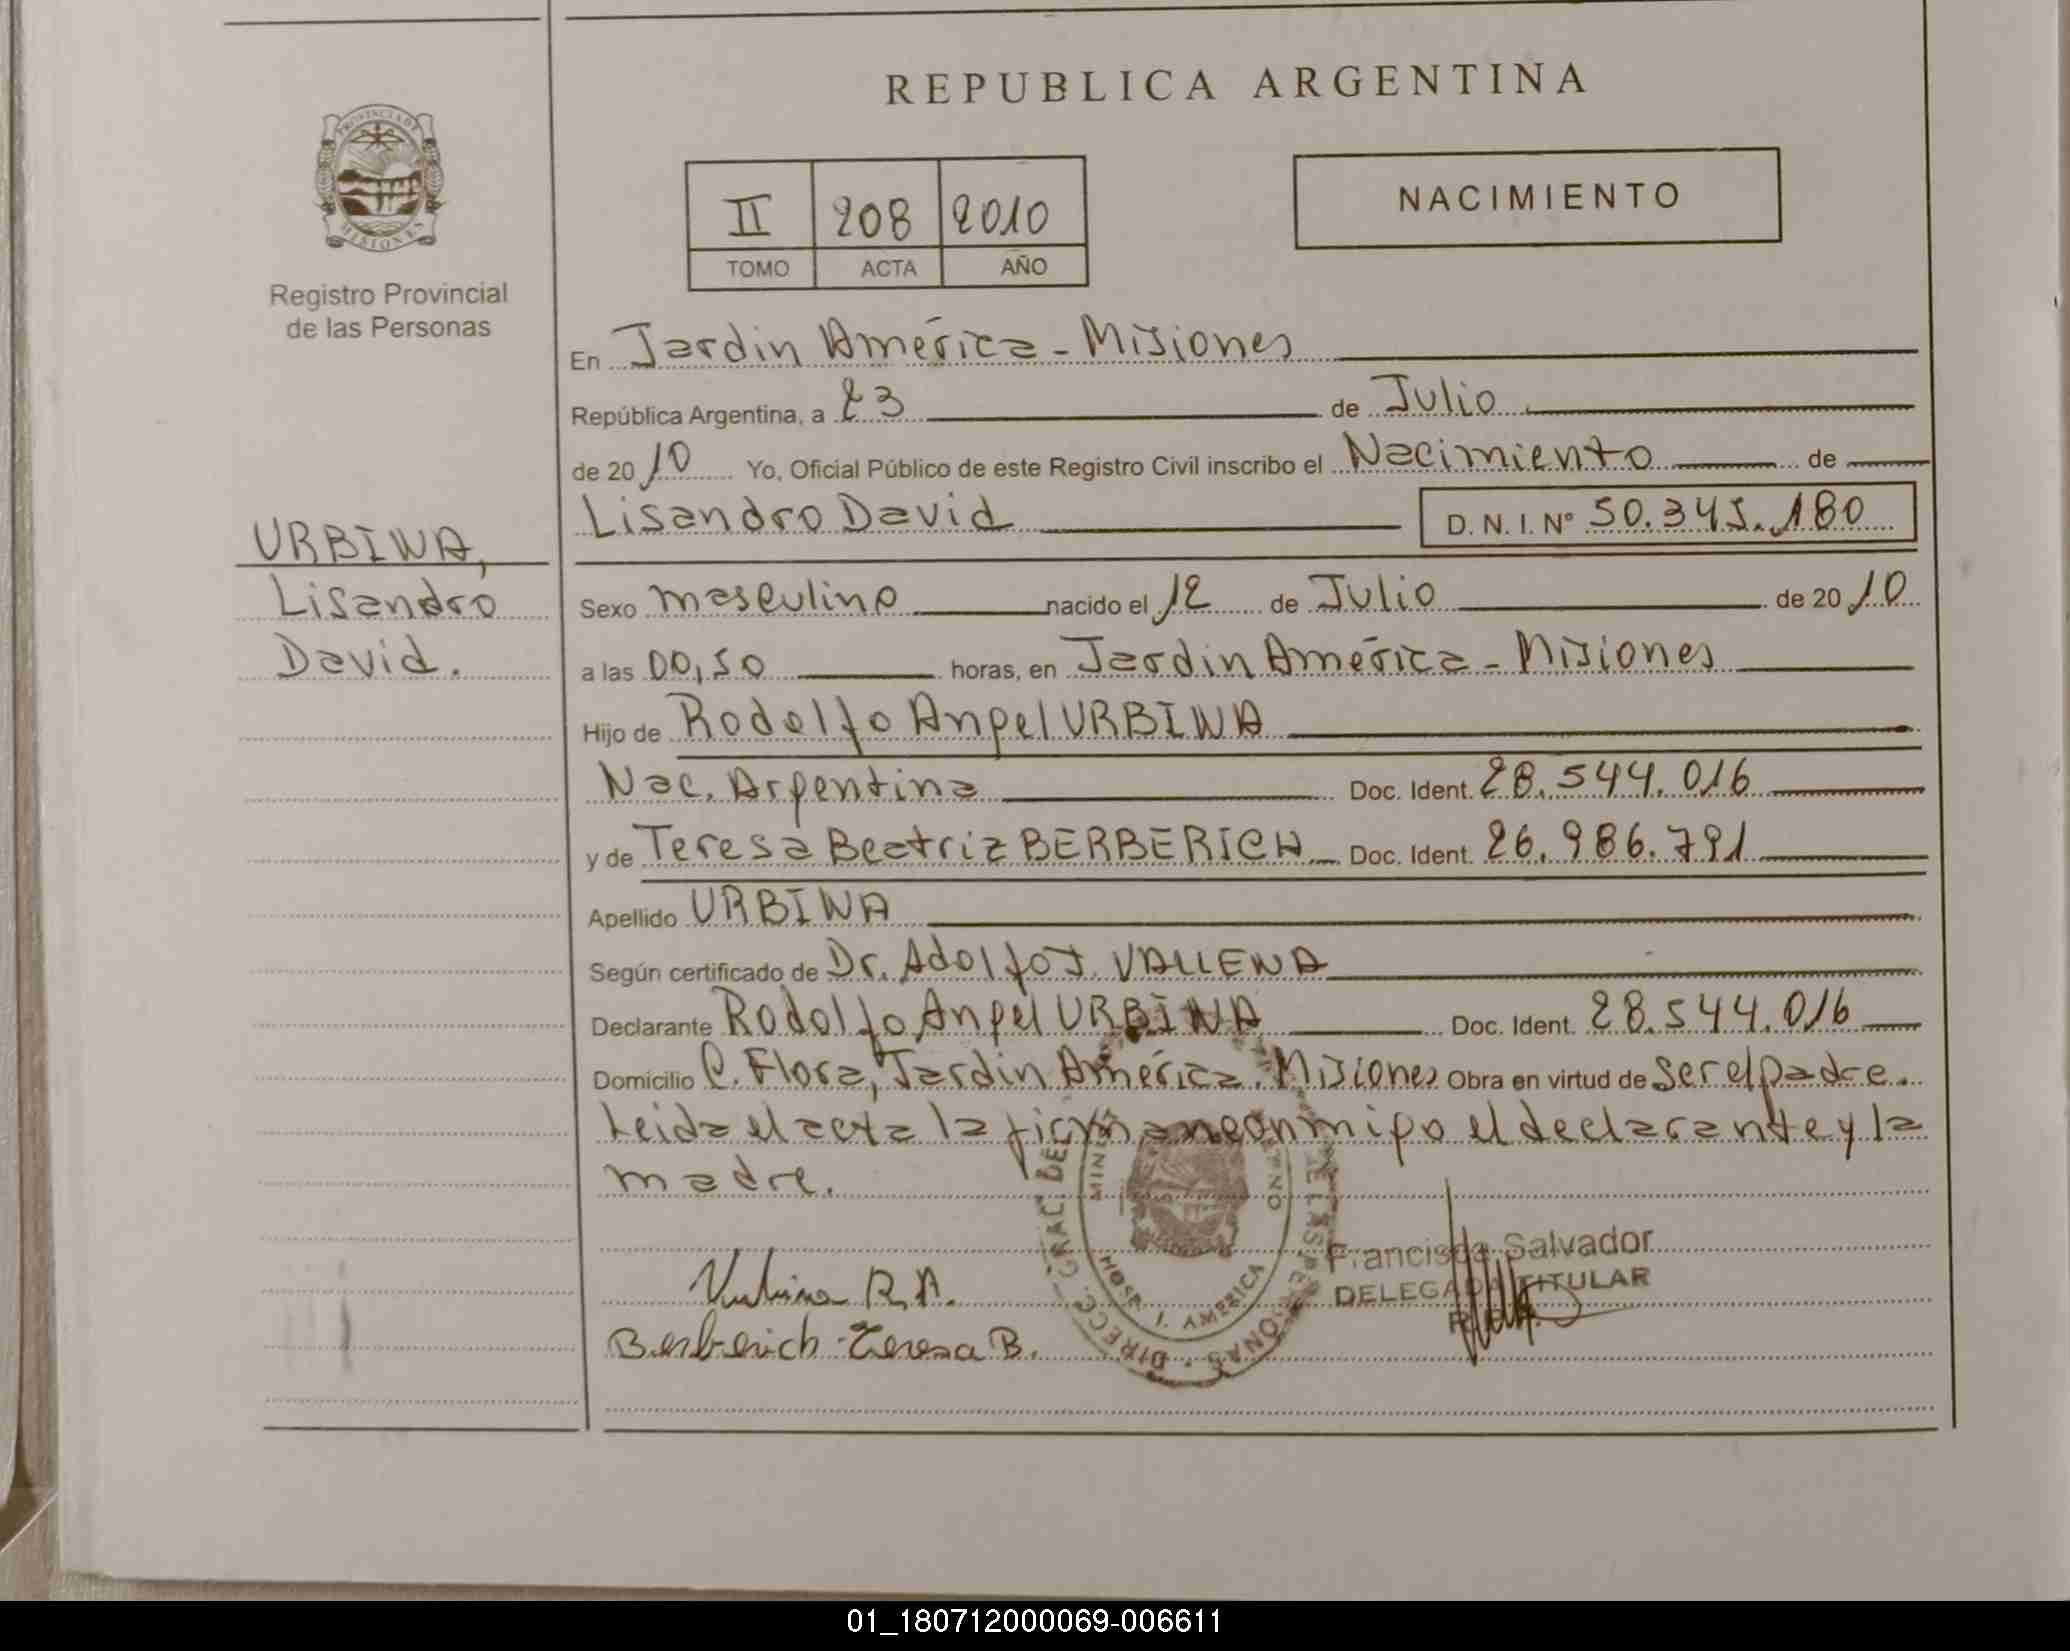 REPUBLICA ARGENTINA
PROVINCIA DE
MISIONES
Registro Provincial
de las Personas
II 208 2010
TOMO ACTA AÑO
NACIMIENTO
En Jardin América - Misiones
República Argentina, a 23 de Julio
de 2010 Yo, Oficial Público de este Registro Civil inscribo el Nacimiento de
Lisandro David D. N. I. Nº 50.345.180
URBINA,
Lisandro
David.
Sexo masculino nacido el 12 de Julio de 2010
a las 00,50 horas, en Jardin América - Misiones
Hijo de Rodolfo Angel URBINA
Nac. Argentina Doc. Ident. 28.544.016
y de Teresa Beatriz BERBERICH Doc. Ident. 26.986.791
Apellido URBINA
Según certificado de Dr. Adolfo J. VALLENA
Declarante Rodolfo Angel URBINA Doc. Ident. 28.544.016
Domicilio C. Flora, Jardin América. Misiones Obra en virtud de ser el padre.
Leida el acta la firman conmigo el declarante y la
madre.
Urbina R.A.
Berberich Teresa B.
DIRECC. GRAL. DE
HOSP. J. AMERICA
Francisco Salvador
DELEGADO TITULAR
01_180712000069-006611